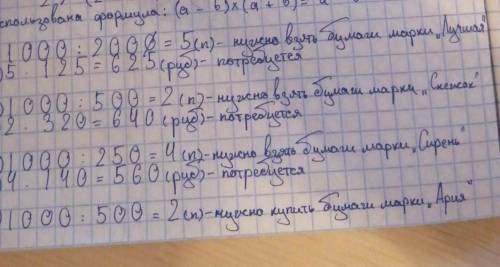 спользована формула: (а - б)×(а + б) = а
1000 : 2000 = 5(п)- нужно взять бумаги марки „Лучшая"
5 · 125 = 625(руб)- потребуется
1000 : 500 = 2(п)- нужно взять бумаги марки „Снежок"
2 · 320 = 640(руб)- потребуется
1000 : 250 = 4(п)- нужно взять бумаги марки „Сирень"
4 · 140 = 560(руб)- потребуется
1000 : 500 = 2(п)- нужно купить бумаги марки „Ария"